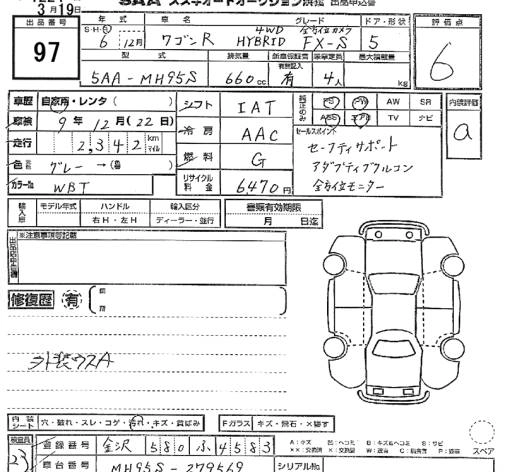 3月19日
SAA スズキオートオークション浜松 出品申込書
出品番号
97
年式 車名 グレード ドア・形状
S・H・R 6年 12月 ワゴンR 4WD 全方位カメラ HYBRID FX-S 5
型式 排気量 新車保証書 乗車定員 最大積載量
5AA-MH95S 660cc 有 4人 kg
評価点
6
車歴 自家用・レンタ( )
車検 9年12月(22日)
走行 2,342 km マイル
色 グレー→(替)
カラー№ WBT
シフト IAT
冷房 AAC
燃料 G
リサイクル料金 6470円
純正のみ PS PW AW SR
ABS エアB TV ナビ
セールスポイント
セーフティサポート
アダプティブクルコン
全方位モニター
内装評価
a
輸入車 モデル年式 ハンドル 輸入区分
年 右H・左H ディーラー・並行
書類有効期限
月 日迄
※注意事項等記載
修復歴 有
外装ウスA
内装シート 穴・破れ・スレ・コゲ・汚れ・キズ・黄ばみ
Fガラス キズ・飛石・×要す
検査員
登録番号 金沢 580 ふ 4583
車台番号 MH95S-279569
シリアル№
A:キズ E:エクボ W:波
スペア